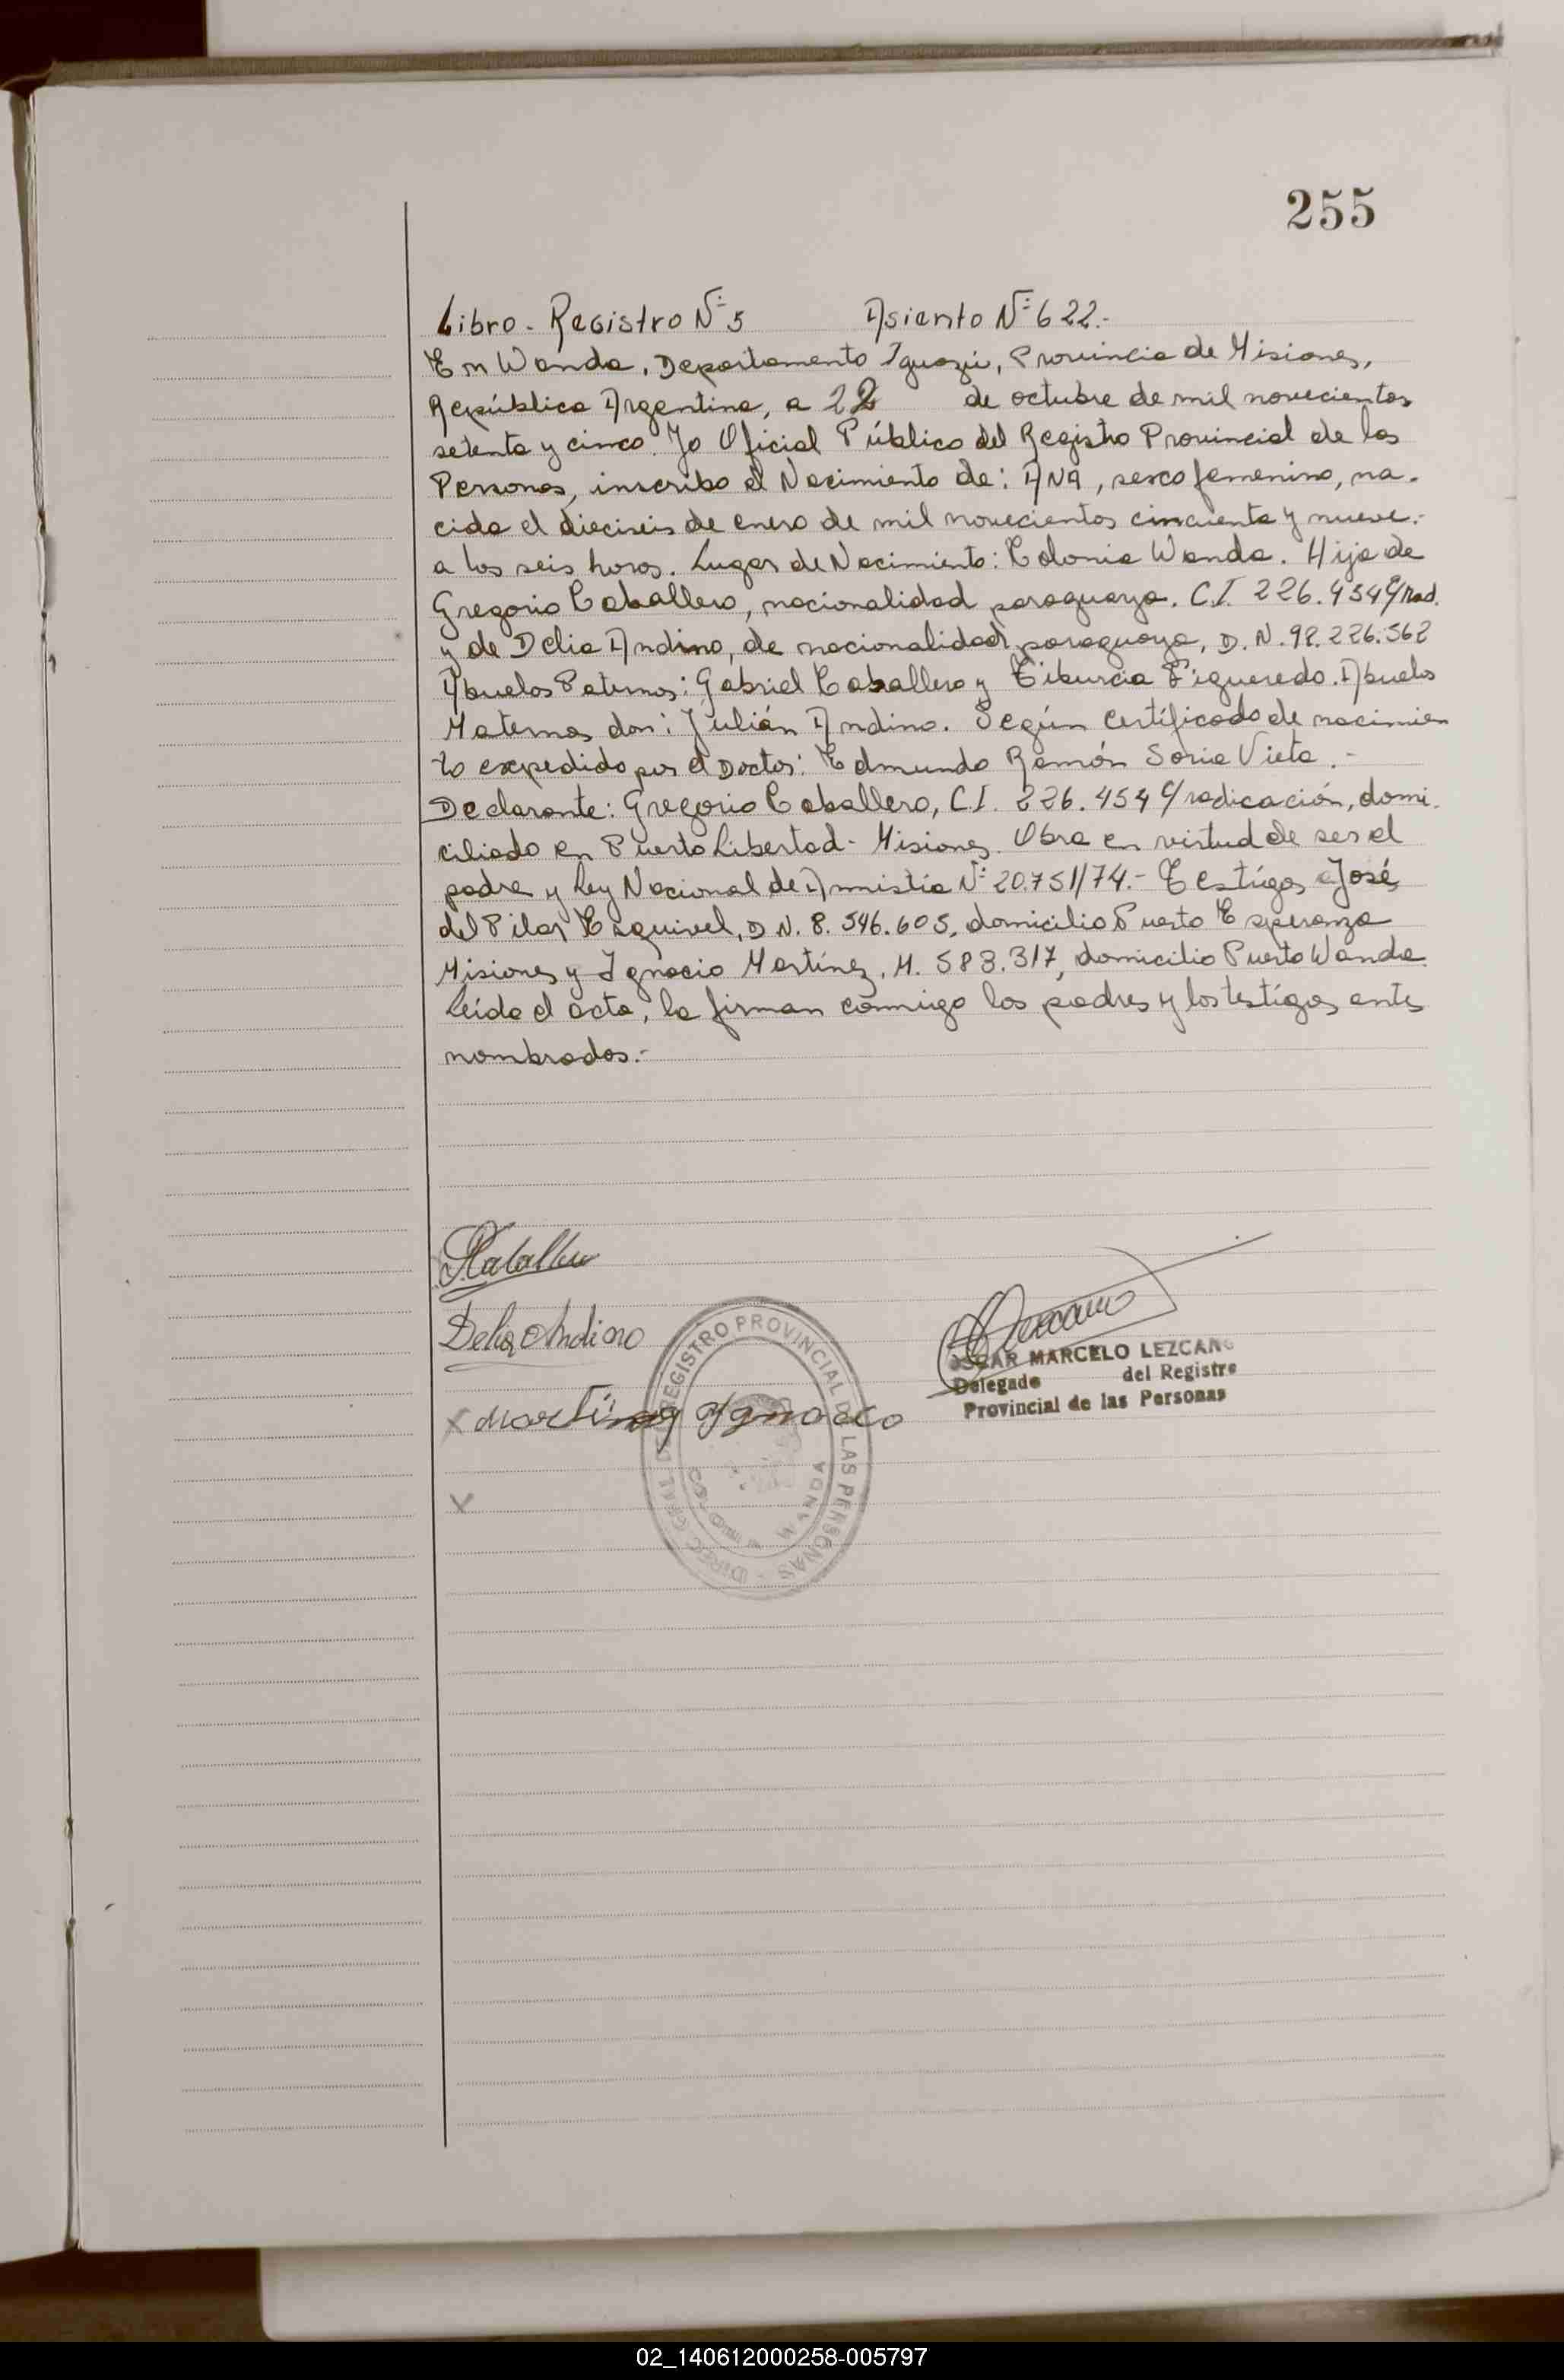 255
Libro - Registro Nº 5 Asiento Nº 622.-
En Wanda, Departamento Iguazú, Provincia de Misiones,
República Argentina, a 22 de octubre de mil novecientos
setenta y cinco. Yo Oficial Público del Registro Provincial de las
Personas, inscribo el Nacimiento de: ANA, sexo femenino, na-
cida el dieciseis de enero de mil novecientos cincuenta y nueve.-
a las seis horas. Lugar de Nacimiento: Colonia Wanda. Hija de
Gregorio Caballero, nacionalidad paraguaya. C.I. 226.454 c/rad.
y de Delia Andino, de nacionalidad paraguaya, D.N. 92.226.562
Abuelos Paternos: Gabriel Caballero y Tiburcia Figueredo. Abuelos
Maternos don: Julián Andino. Según certificado de nacimien
to expedido por el Doctor: Edmundo Ramón Soria Vieta.-
Declarante: Gregorio Caballero, C.I. 226.454 c/radicación, domi-
ciliado en Puerto Libertad - Misiones. Obra en virtud de ser el
padre y Ley Nacional de Amnistía Nº 20.751/74.- Testigos José
del Pilar Esquivel, D.N. 8.546.605, domicilio Puerto Esperanza
Misiones y Ignacio Martínez, M. 583.317, domicilio Puerto Wanda.
Leída el acta, la firman conmigo los padres y los testigos antes
nombrados.-
Caballero
Delia Andino
OSCAR MARCELO LEZCANO
Delegado del Registro
Provincial de las Personas
x Martinez Ignacio
x
REGISTRO PROVINCIAL DE LAS PERSONAS
WANDA
02_140612000258-005797